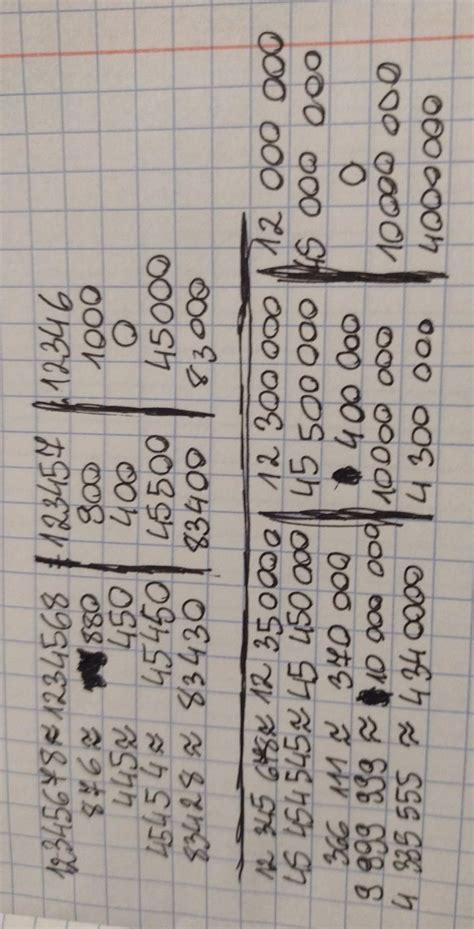 12345678≈1234568 | 123457 | 12346
876≈ 880 | 900 | 1000
445≈ 450 | 400 | 0
45454≈ 45450 | 45500 | 45000
83428≈ 83430 | 83400 | 83000
12 345 678≈ 12 350000 | 12 300 000 | 12 000 000
45 454 545≈ 45 450 000 | 45 500 000 | 45 000 000
366 111 ≈ 370 000 | 400 000 | 0
9 999 999 ≈ 10 000 000 | 10000 000 | 10000 000
4 335 555 ≈ 4340000 | 4 300 000 | 4000000